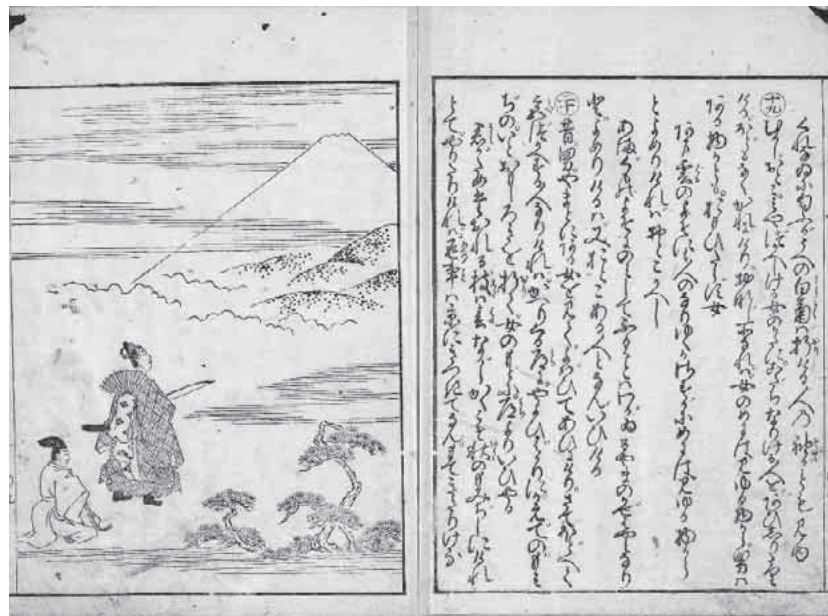 くれなゐに匂ふがうへの白菊は折ける人の袖かとも見ゆ
十九 むかしおとこみやづかへしける女のかたにごたちなりける人をあひしりたり
けるほどもなくかれにけり同じ所なれば女のめには見ゆる物から男は
ある物かとも思ひたらず女
あま雲のよそにも人のなりゆくかさすがにめには見ゆる物から
とよめりければおとこかへし
あま雲のよそにのみしてふることはわがゐるやまの風はやみなり
とよめりけるは又おとこある人となんいひける
二十 昔男やまとにある女を見てよばひてあひにけりさてほどへて
宮づかへする人なりければかへりくる道にやよひばかりにかえでのもみ
ぢのいとおもしろきを折て女のもとに道よりいひやる
君がためたおれる枝は春ながらかくこそ秋のもみぢしにけれ
とてやりたりければ返事は京にきつきてなんもてきたりける